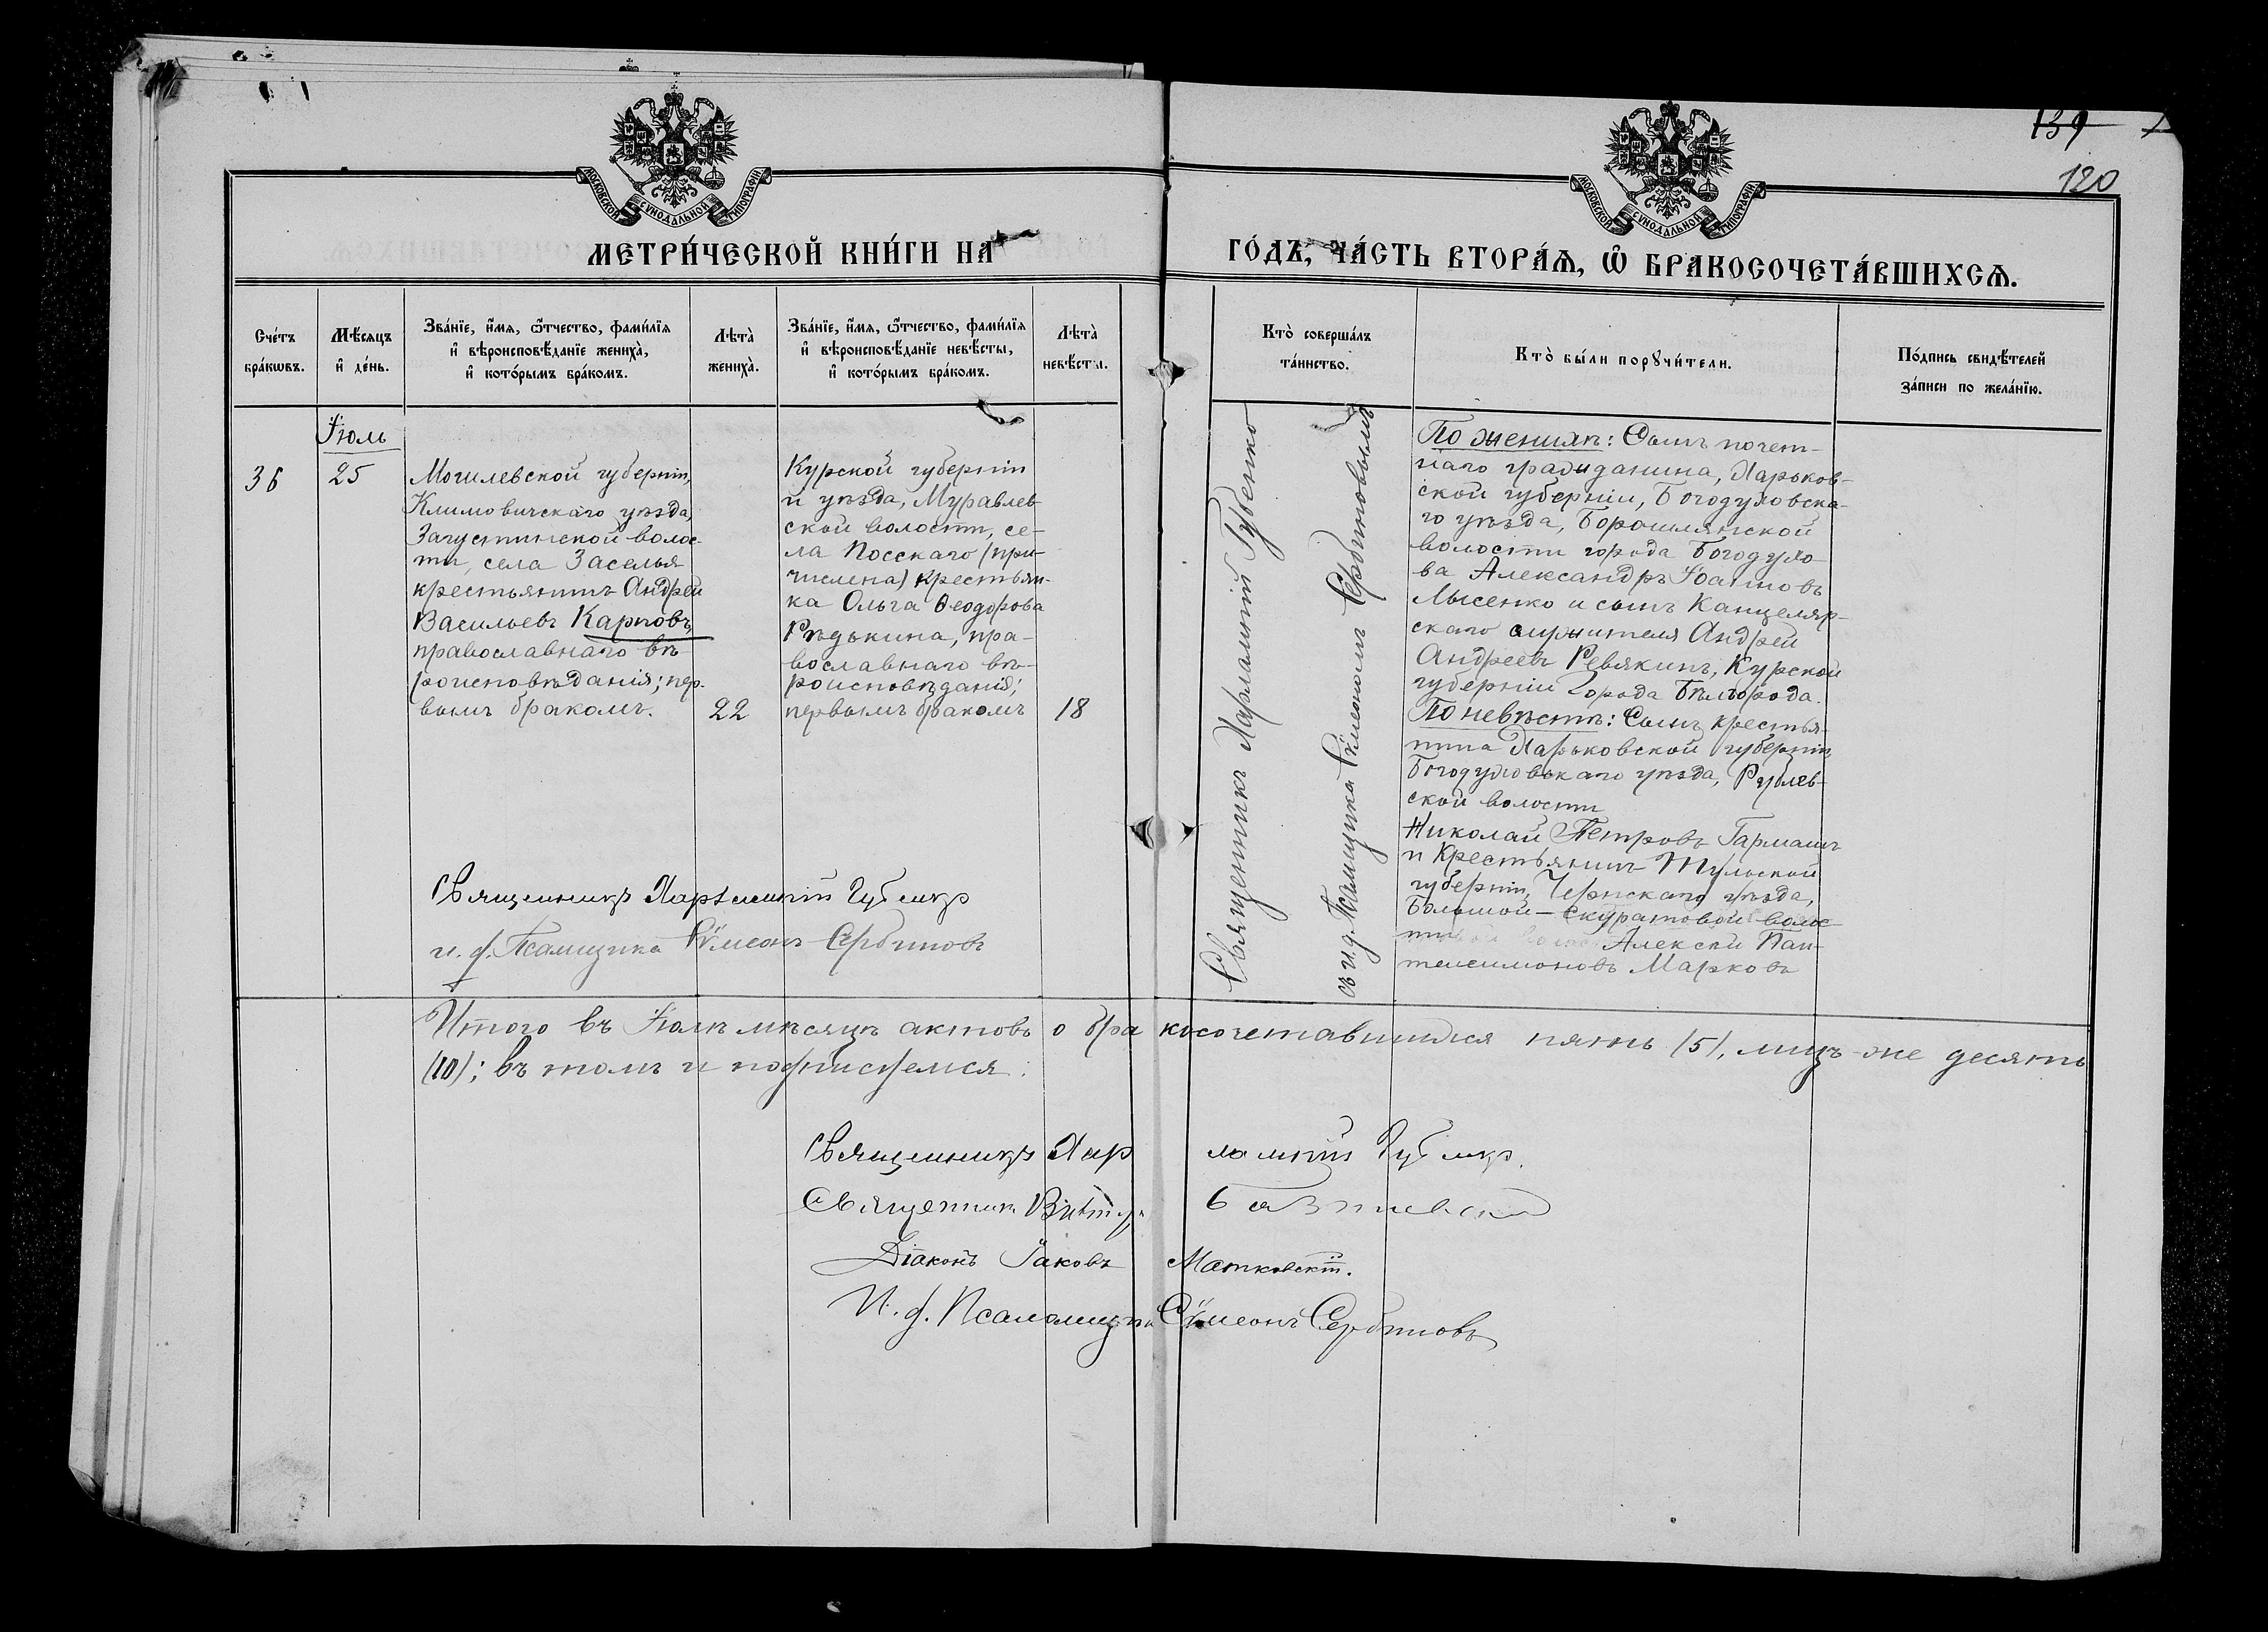 139
120
МОСКОВСКОЙ СѴНОДАЛЬНОЙ ТИПОГРАФІИ
МОСКОВСКОЙ СѴНОДАЛЬНОЙ ТИПОГРАФІИ
МЕТРИ́ЧЕСКОЙ КНИ́ГИ НА
ГО́ДЪ, ЧА́СТЬ ВТОРА́Ѧ, Ѽ БРАКОСОЧЕТА́ВШИХСѦ.
Сче́тъ
бра́кѡвъ.
Мѣ́сяцъ
и҆ де́нь.
Зва́нїе, и҆́мѧ, ѻ҆́тчество, фами́лїѧ
и҆ вѣроисповѣ́данїе жениха̀,
и҆ кото́рымъ бра́комъ.
Лѣта̀
жениха̀.
Зва́нїе, и҆́мѧ, ѻ҆́тчество, фами́лїѧ
и҆ вѣроисповѣ́данїе невѣ́сты,
и҆ кото́рымъ бра́комъ.
Лѣта̀
невѣ́сты.
Кто̀ соверша́лъ
та́инство.
Кто̀ бы́ли порꙋчи́тели.
По́дпись свидѣ́телей
за́писи по жела́нїю.
Іюль
36
25
Могилевской губерніи,
Климовичскаго уѣзда,
Загустинской волос-
ти, села Заселья
крестьянинъ Андрей
Васильевъ Карповъ,
православнаго вѣ-
роисповѣданія; пер-
вымъ бракомъ.
22
Курской губерніи
и уѣзда, Муравлев-
ской волости, се-
ла Посскаго (при-
числена) крестьян-
ка Ольга Ѳеодорова
Рѣдькина, пра-
вославнаго вѣ-
роисповѣданія;
первымъ бракомъ
18
Священникъ Харлампій Губенко
съ и.д. Псаломщика Сѵмеономъ Сербиновымъ
По женихѣ: Сынъ почет-
наго гражданина, Харьков-
ской губерніи, Богодуховска-
го уѣзда, Боромлянской
волости города Богодухо-
ва Александръ Іоанновъ
Лысенко и сынъ Канцеляр-
скаго служителя Андрей
Андреевъ Ревякинъ, Курской
губерніи города Бѣлгорода.
По невѣстѣ: Сынъ крестья-
нина Харьковской губерніи,
Богодуховскаго уѣзда, Рублев-
ской волости
Николай Петровъ Гармашъ
и Крестьянинъ Тульской
губерніи, Чернскаго уѣзда,
Большой-Скуратовой волос-
ти Алексѣй Пан-
телеимоновъ Марковъ
Священникъ Харлампій Губенко
и. д. Псаломщика Сѵмеонъ Сербиновъ
Итого въ Іюлѣ мѣсяцѣ актовъ о бракосочетавшихся пять (5), лицъ-же десять
(10); въ томъ и подписуемся:
Священникъ Харлампій Губенко.
Священникъ Викторъ
Діаконъ Іаковъ Матковскій.
И. д. Псаломщика Сѵмеонъ Сербиновъ